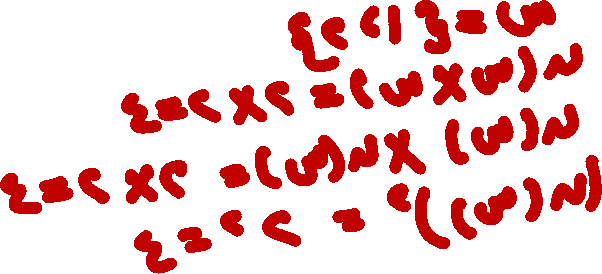 س = {١ ، ٢}
ن (س × س) = ٢ × ٢ = ٤
ن (س) × ن (س) = ٢ × ٢ = ٤
(ن (س))^٢ = ٢^٢ = ٤